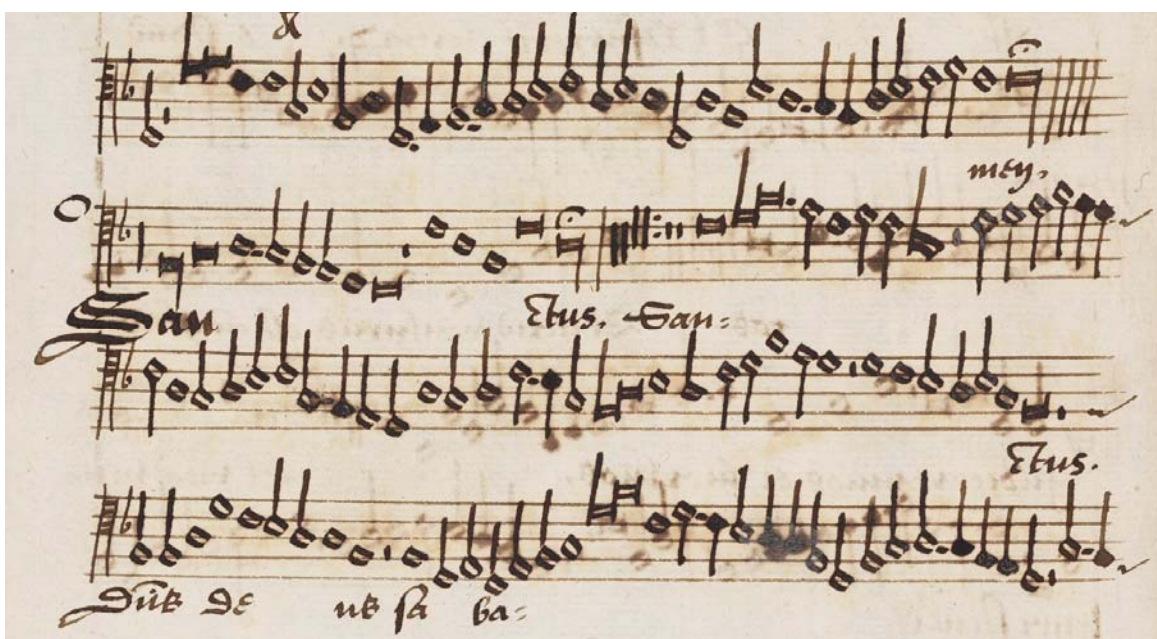 men.
San ctus. San-
ctus.
Dns de us sa ba-